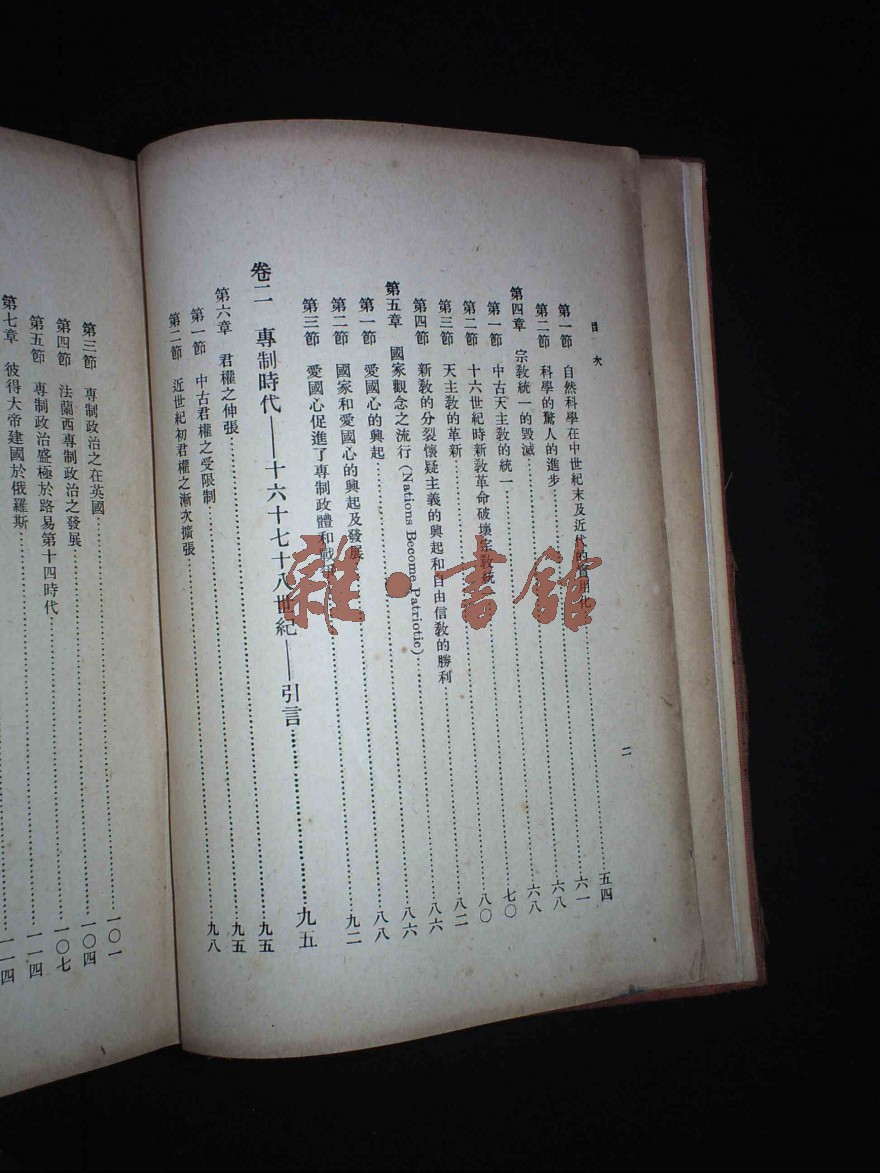 目次
二
第一節 自然科學在中世紀末及近代的實用化 五四
第二節 科學的驚人的進步 六一
第四章 宗教統一的毀滅 六八
第一節 中古天主教的統一 六八
第二節 十六世紀時新教革命破壞宗教統 七〇
第三節 天主教的革新 八〇
第四節 新教的分裂懷疑主義的興起和自由信教的勝利 八二
第五章 國家觀念之流行(Nations Become Patriotic) 八六
第一節 愛國心的興起 八六
第二節 國家和愛國心的興起及發展 八八
第三節 愛國心促進了專制政體和戰爭 九二
卷二 專制時代——十六十七十八世紀——引言 九五
第六章 君權之伸張 九五
第一節 中古君權之受限制 九五
第二節 近世紀初君權之漸次擴張 九八
第三節 專制政治之在英國 一〇一
第四節 法蘭西專制政治之發展 一〇四
第五節 專制政治盛極於路易第十四時代 一〇七
第七章 彼得大帝建國於俄羅斯 一一四
一一四
雜·書館